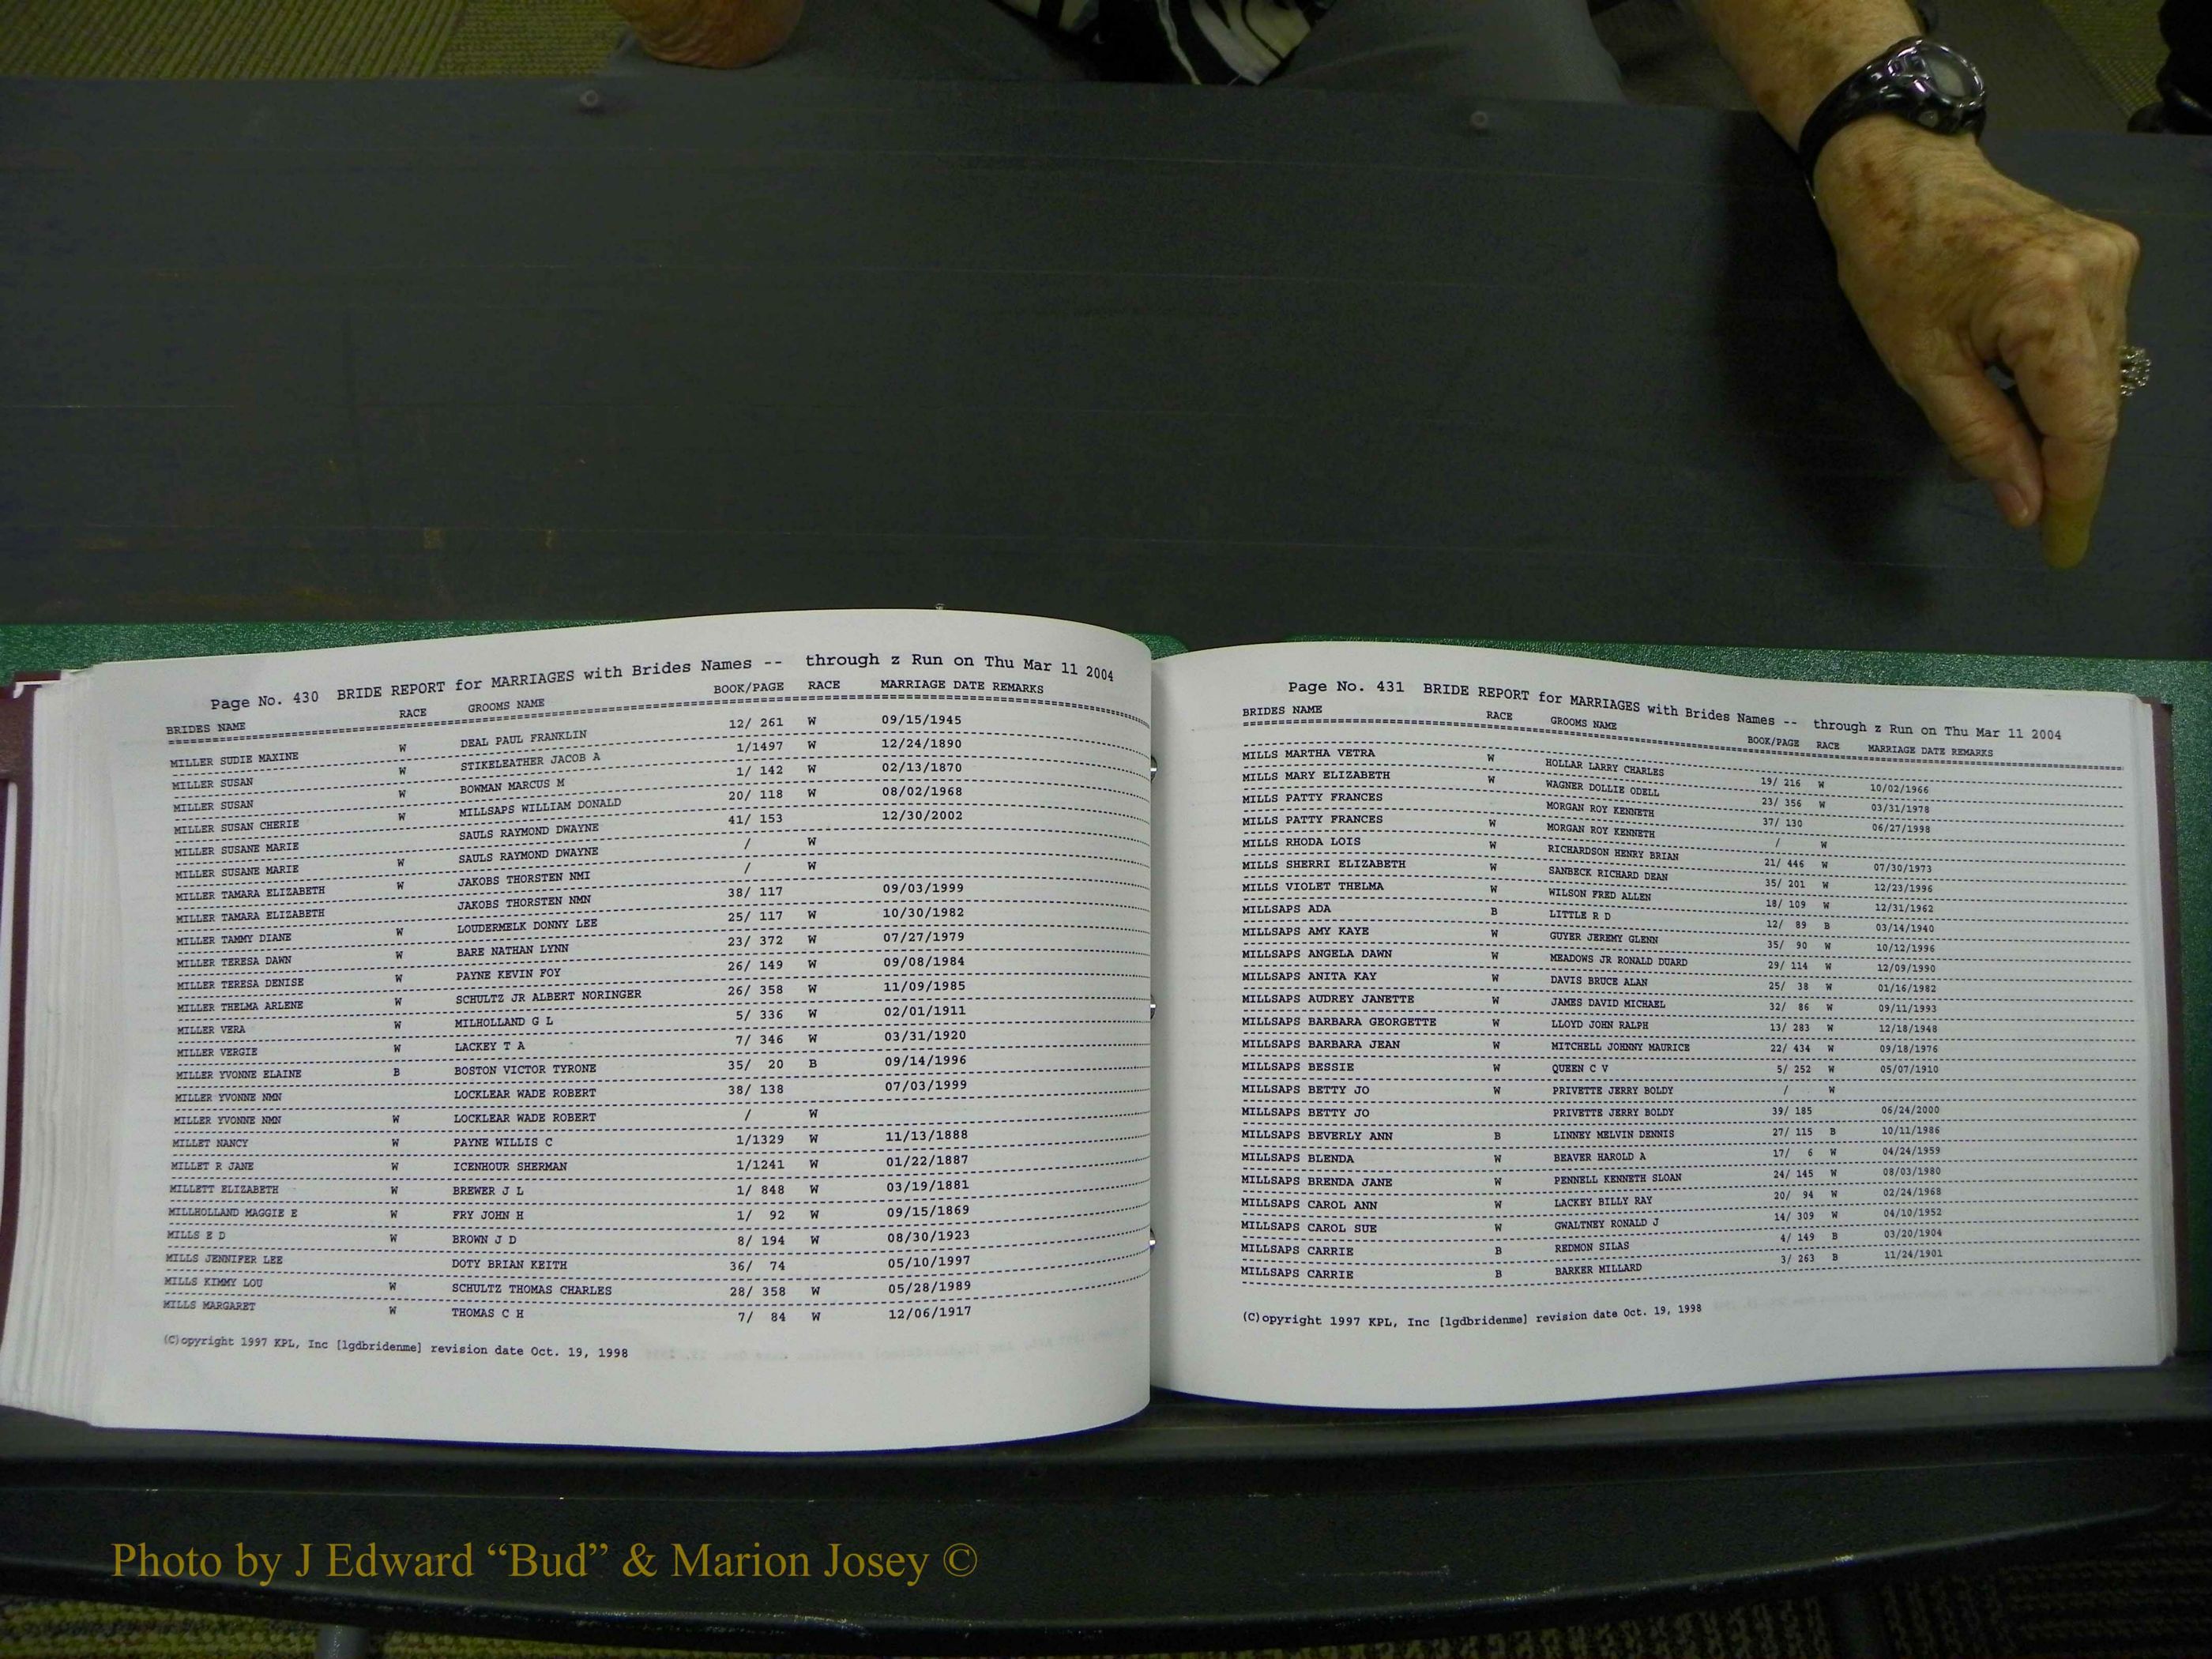 Page No. 430 BRIDE REPORT for MARRIAGES with Brides Names -- through z Run on Thu Mar 11 2004
BRIDES NAME RACE GROOMS NAME BOOK/PAGE RACE MARRIAGE DATE REMARKS
MILLER SUDIE MAXINE W DEAL PAUL FRANKLIN 12/ 261 W 09/15/1945
MILLER SUSAN W STIKELEATHER JACOB A 1/1497 W 12/24/1890
MILLER SUSAN W BOWMAN MARCUS M 1/ 142 W 02/13/1870
MILLER SUSAN CHERIE W MILLSAPS WILLIAM DONALD 20/ 118 W 08/02/1968
MILLER SUSANE MARIE SAULS RAYMOND DWAYNE 41/ 153 12/30/2002
MILLER SUSANE MARIE W SAULS RAYMOND DWAYNE / W
MILLER TAMARA ELIZABETH W JAKOBS THORSTEN NMI / W
MILLER TAMARA ELIZABETH JAKOBS THORSTEN NMN 38/ 117 09/03/1999
MILLER TAMMY DIANE W LOUDERMELK DONNY LEE 25/ 117 W 10/30/1982
MILLER TERESA DAWN W BARE NATHAN LYNN 23/ 372 W 07/27/1979
MILLER TERESA DENISE W PAYNE KEVIN FOY 26/ 149 W 09/08/1984
MILLER THELMA ARLENE W SCHULTZ JR ALBERT NORINGER 26/ 358 W 11/09/1985
MILLER VERA W MILHOLLAND G L 5/ 336 W 02/01/1911
MILLER VERGIE W LACKEY T A 7/ 346 W 03/31/1920
MILLER YVONNE ELAINE B BOSTON VICTOR TYRONE 35/ 20 B 09/14/1996
MILLER YVONNE NMN LOCKLEAR WADE ROBERT 38/ 138 07/03/1999
MILLER YVONNE NMN W LOCKLEAR WADE ROBERT / W
MILLET NANCY W PAYNE WILLIS C 1/1329 W 11/13/1888
MILLET R JANE W ICENHOUR SHERMAN 1/1241 W 01/22/1887
MILLETT ELIZABETH W BREWER J L 1/ 848 W 03/19/1881
MILLHOLLAND MAGGIE E W FRY JOHN H 1/ 92 W 09/15/1869
MILLS E D W BROWN J D 8/ 194 W 08/30/1923
MILLS JENNIFER LEE DOTY BRIAN KEITH 36/ 74 05/10/1997
MILLS KIMMY LOU W SCHULTZ THOMAS CHARLES 28/ 358 W 05/28/1989
MILLS MARGARET W THOMAS C H 7/ 84 W 12/06/1917
(C)opyright 1997 KPL, Inc [lgdbridenme] revision date Oct. 19, 1998
Page No. 431 BRIDE REPORT for MARRIAGES with Brides Names -- through z Run on Thu Mar 11 2004
BRIDES NAME RACE GROOMS NAME BOOK/PAGE RACE MARRIAGE DATE REMARKS
MILLS MARTHA VETRA W HOLLAR LARRY CHARLES 19/ 216 W 10/02/1966
MILLS MARY ELIZABETH W WAGNER DOLLIE ODELL 23/ 356 W 03/31/1978
MILLS PATTY FRANCES MORGAN ROY KENNETH 37/ 130 06/27/1998
MILLS PATTY FRANCES W MORGAN ROY KENNETH / W
MILLS RHODA LOIS W RICHARDSON HENRY BRIAN 21/ 446 W 07/30/1973
MILLS SHERRI ELIZABETH W SANBECK RICHARD DEAN 35/ 201 W 12/23/1996
MILLS VIOLET THELMA W WILSON FRED ALLEN 18/ 109 W 12/31/1962
MILLSAPS ADA B LITTLE R D 12/ 89 B 03/14/1940
MILLSAPS AMY KAYE W GUYER JEREMY GLENN 35/ 90 W 10/12/1996
MILLSAPS ANGELA DAWN W MEADOWS JR RONALD DUARD 29/ 114 W 12/09/1990
MILLSAPS ANITA KAY W DAVIS BRUCE ALAN 25/ 38 W 01/16/1982
MILLSAPS AUDREY JANETTE W JAMES DAVID MICHAEL 32/ 86 W 09/11/1993
MILLSAPS BARBARA GEORGETTE W LLOYD JOHN RALPH 13/ 283 W 12/18/1948
MILLSAPS BARBARA JEAN W MITCHELL JOHNNY MAURICE 22/ 434 W 09/18/1976
MILLSAPS BESSIE W QUEEN C V 5/ 252 W 05/07/1910
MILLSAPS BETTY JO W PRIVETTE JERRY BOLDY / W
MILLSAPS BETTY JO PRIVETTE JERRY BOLDY 39/ 185 06/24/2000
MILLSAPS BEVERLY ANN B LINNEY MELVIN DENNIS 27/ 115 B 10/11/1986
MILLSAPS BLENDA W BEAVER HAROLD A 17/ 6 W 04/24/1959
MILLSAPS BRENDA JANE W PENNELL KENNETH SLOAN 24/ 145 W 08/03/1980
MILLSAPS CAROL ANN W LACKEY BILLY RAY 20/ 94 W 02/24/1968
MILLSAPS CAROL SUE W GWALTNEY RONALD J 14/ 309 W 04/10/1952
MILLSAPS CARRIE B REDMON SILAS 4/ 149 B 03/20/1904
MILLSAPS CARRIE B BARKER MILLARD 3/ 263 B 11/24/1901
(C)opyright 1997 KPL, Inc [lgdbridenme] revision date Oct. 19, 1998
Photo by J Edward “Bud” & Marion Josey ©